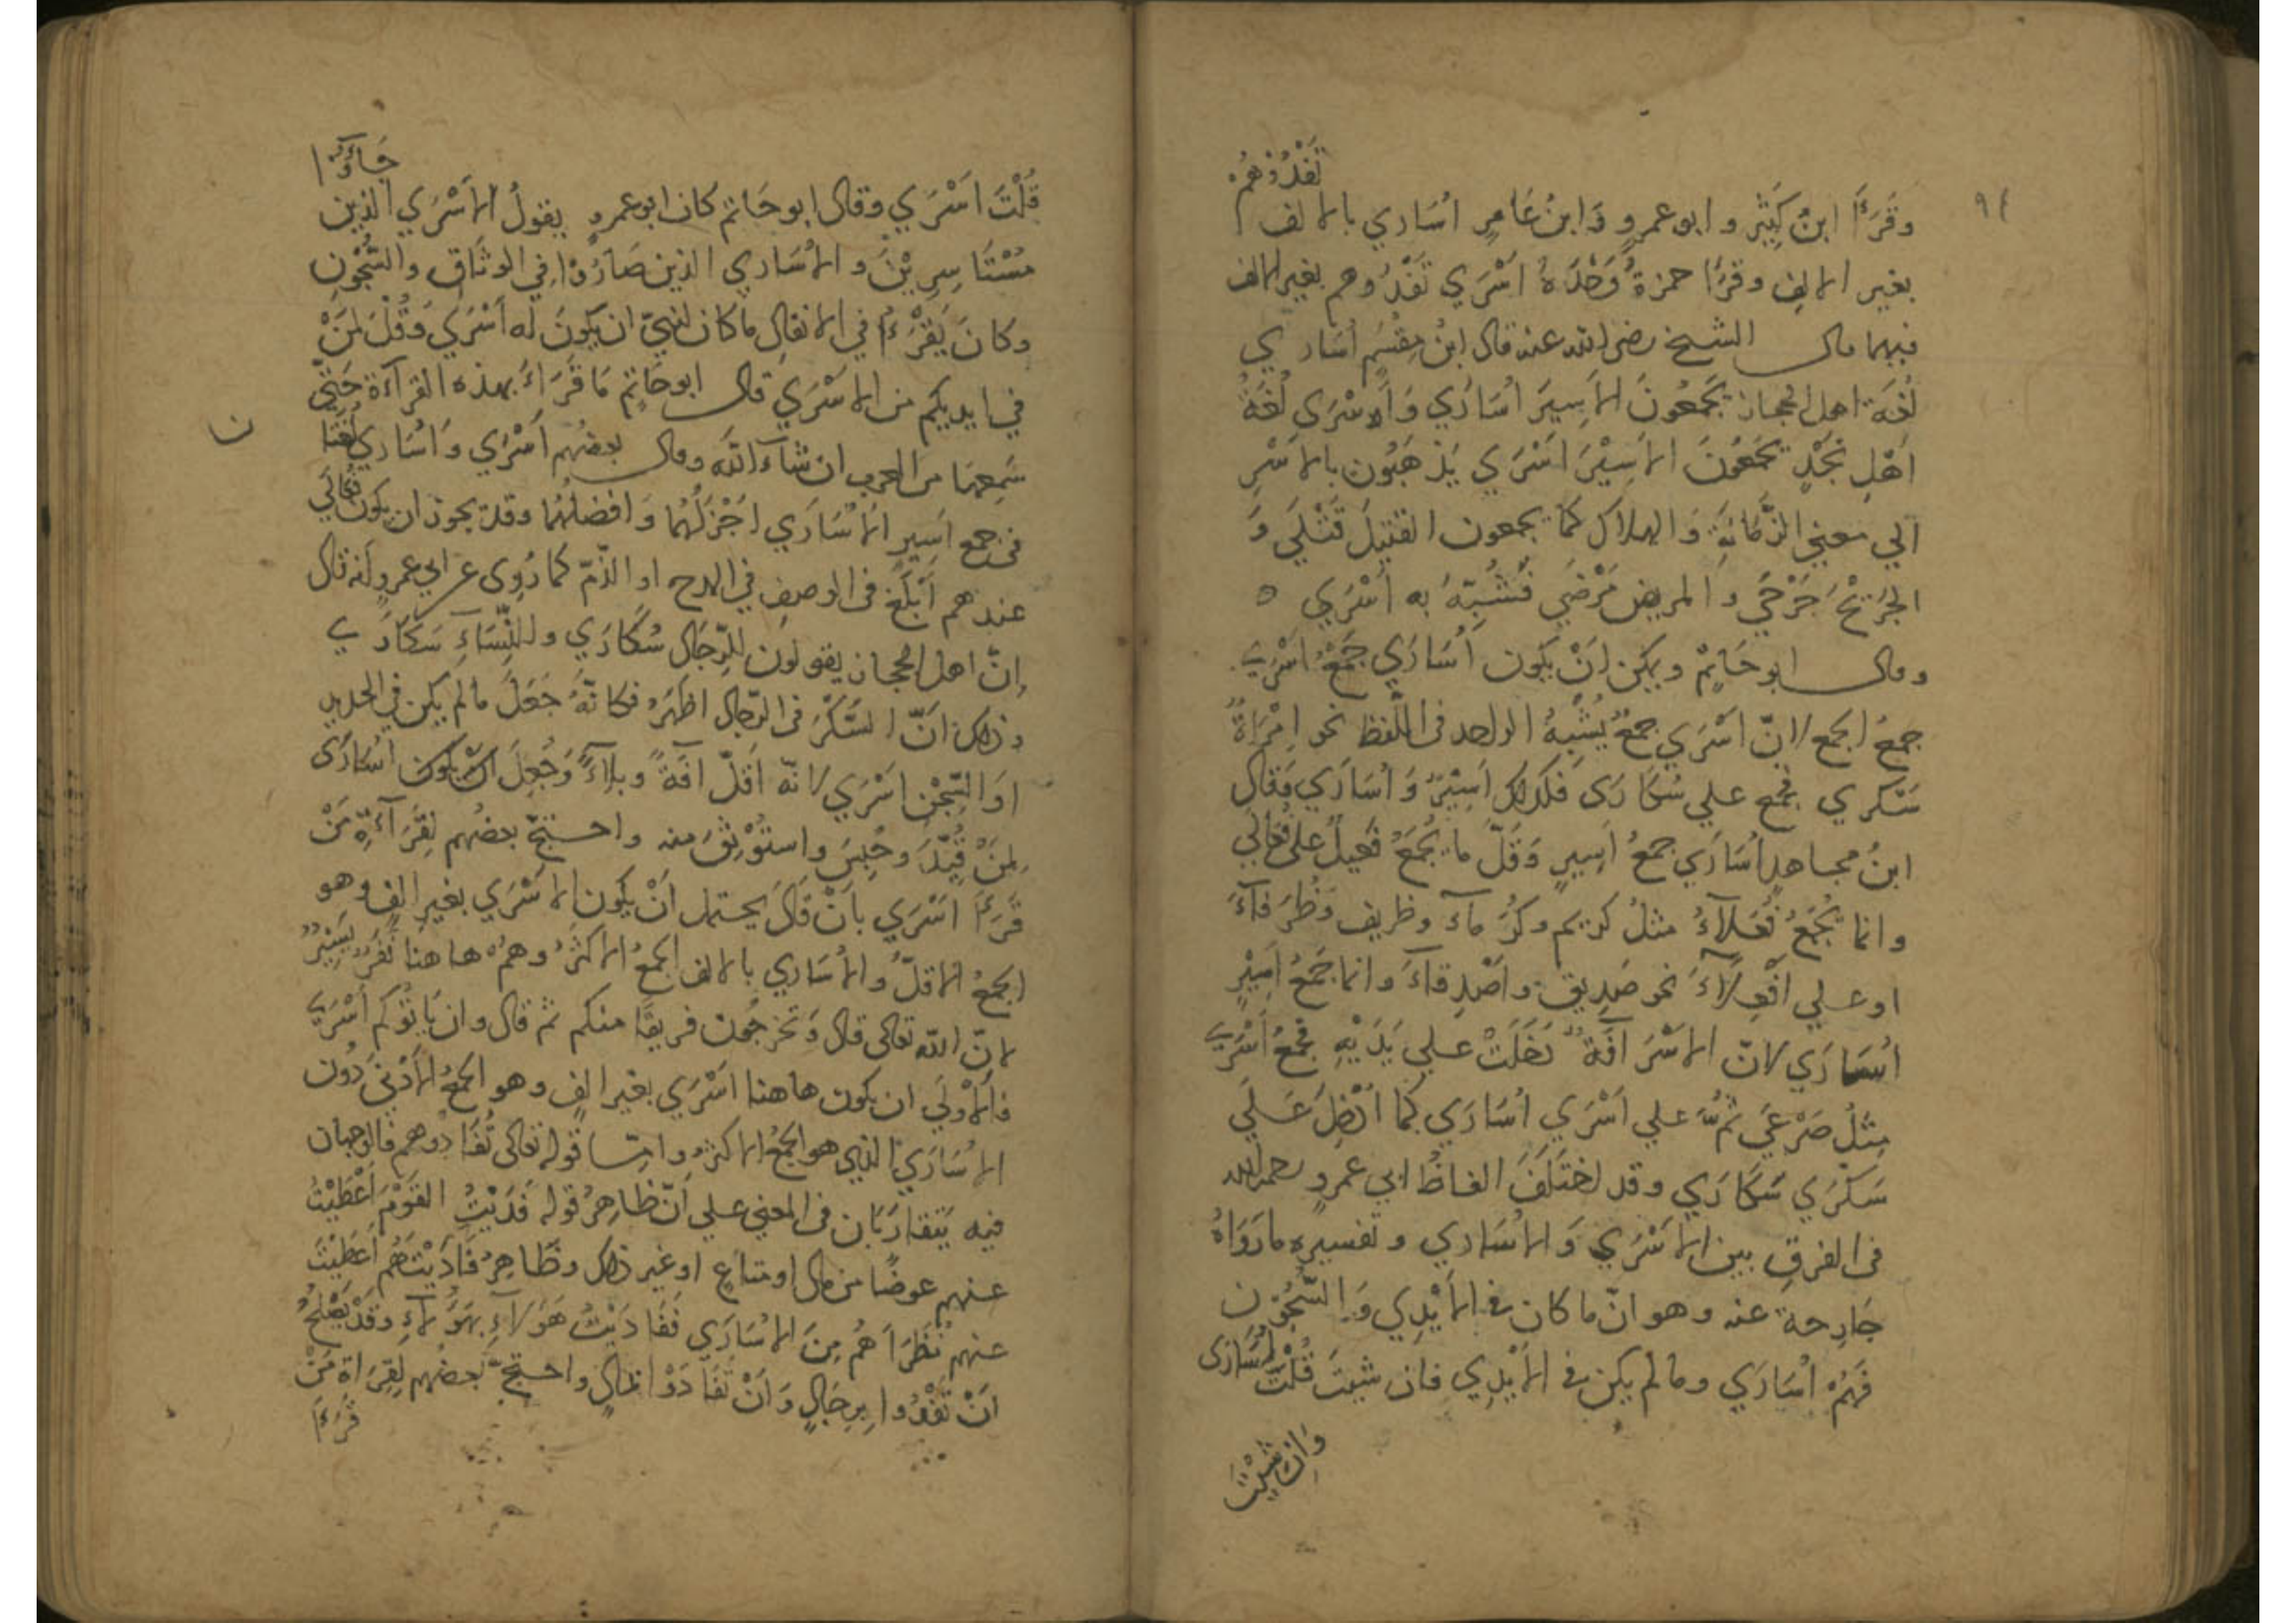 ٩٤
وقَرَأَ ابنُ كَثِيْرٍ وابو عمرٍو وَابنُ عَامِرٍ اُسَارَي بالالف تَفْدُوْهُمْ
بغير الالفِ وقرَا حمزةُ وَحْدَهُ اَسْرَي تَفْدُوهم بغير الالف
فيهما قال الشيخ رضي الله عنه قال ابنُ مِقْسَمٍ اُسَارَي
لُغَةُ اهل الحجاز يَجْمَعُونَ الاَسِيرَ اُسَارَي وَاَسْرَى لُغَةُ
اَهْلِ نَجْدٍ يَجْمَعُونَ الاَسِيْرَ اَسْرَي يَذْهَبُون بالاَسْرِ
الي معني الزَّمَانَةِ وَالهلاك كَمَا يجمعون القتيلَ قَتْلَي وَ
الجَرِيْحَ جَرْحَي والمريض مَرْضَي فَشُبِّهَ به اَسْرَي ه
وقال ابو حَاتِمٌ ويمكن اَنْ يكون اُسَارَي جَمْعُ اَسْرَي
جَمعُ الجمع لانّ اَسْرَي جمعٌ يُشْبِهُ الواحد في اللّفظ نحو اِمْرَاةٌ
سَكْري يجمع علي سُكَارَى فكذلك اَسِيْرٌ وَاُسَارَي وَقال
ابنُ مجاهدٍ اُسَارَي جمعُ اَسِيرٍ وَقَلَّ ما يُجْمَعُ فَعِيلٌ على فُعَالَي
وانما يُجْمَعُ فُعَلَاءُ مثلُ كريم وكُرَمآء وظريف وَظُرَفآءَ
او علي اَفْعِلَاءَ نحو صَدِيقٍ واَصْدِقآءَ وانما جَمعُ اَسِيْرٍ
اُسَارَي لانّ الاَسْرَ آفَةٌ دَخَلَتْ علي يَدَيْهِ فجُمعَ اَسْرَي
مِثْلُ صَرْعَي ثمَّ علي اَسْرَي اُسَارَي كما اُدْخِلَ عَلَي
سَكْرَي سُكَارَي وقد اختَلَفَ الفاظُ ابي عمرٍو رحمه الله
في الفرقِ بين الاَسْرَي وَالاُسَارَي وتفسيره مَا رَوَاهُ
خَارِجة عنه وهو انّ ما كان في الاَيْدِي وَالسُّجُوْنِ
فَهُمْ اُسَارَي وما لم يكن في الاَيْدِي فان شيتَ قُلْتَ اُسَارَى
وَاِن شِئْتَ
قُلْتَ اَسْرَي وقال ابو حَاتم كان ابو عمرٍو يقولُ الاَسْرَي الذين جَاءُوْا
مُسْتَاسِرِيْنَ والاُسَارَي الذين صَارُوْا في الوثَاق والسُّجُونِ
وكَانَ يَقْرَءُ في الانفالِ ما كان لنبيٍّ ان يكونَ له اَسْرَي وَقُلْ لِمَنْ
في ايديكم من الاَسْرَي قال ابو حَاتِمٌ مَا قَرَاءَ بهذه القرآءة حَتّي
سَمِعها من العرب ان شآءَ الله وقال بعضُهم اَسْرَي وَاُسَارَي لُغَتَا
ن
في جمع اَسِيرٍ الاُسَارَي اَجْزَلُهُمَا وَافضلُهُمَا وقد يجوز ان يكون فُعَالَي
عندهم اَبْلَغ في الوصفِ في المدح او الذّمّ كما رُوِى عن ابي عمرٍو اَنه قال
اِنّ اهل الحجاز يقولون للرِّجَال سُكَارَي وللنِّسَآءِ سَكَارَي
وذلك انّ السُّكْرَ في الرّجال اظهَرُ فكانّهُ جَعَلَ ما لم يكن في الحديد
اوَ السِّجْنِ اَسْرَي لانّه اَقَلّ آفَةً وبلاءً وَجُعِلَ اَنْ يكون اُسَارَى
لِمَنْ قُيِّدَ وحُبِسَ واستُوْثِقَ منه واحتجّ بعضُهم لِقِرَآءَةِ مَنْ
قَرَءَ اَسْرَي باَنْ قَالَ يحتمل اَنْ يكون الاَسْرَي بغير الفٍ وهو
الجمعُ الاقلّ والاُسَارَي بالالف الجمعُ الاكثرُ وهُمْ هاهنا نَفَرٌ يَسِيْرٌ
لانّ الله تعالى قال وَتُخرِجُونَ فريقًا منكم ثم قال وان يَاتُوْكُم اَسْرَي
فالاَوْلَي ان يكون هاهنا اَسْرَي بغير الفٍ وهو الجمعُ الاَدْنَي دُون
الاُسَارَي الذي هو الجمعُ الاكثرُ وامّا قوله تعالى تُفَادُوهم فالوجهان
فيه يَتَقَارَبَان في المعني علي اَنَّ ظاهِرُ قوله فَدَيْتُ القَوْمَ اَعْطَيْتُ
عنهم عوضًا من مال او متاعٍ او غير ذلك وظَاهِرُ فَادَيْتَهُم اَعْطَيْتَ
عنهم نُظَرَاهُم مِنَ الاُسَارَي فَفَادَيْتُ هَؤلاءِ بهَؤُلآءِ وقَدْ يَصْلحُ
اَنْ تَفْدُوا بِرِجَالٍ وَاَنْ تُفَادَوْا بمالٍ واحتجّ بعضُهم لِقِرَاة مَنْ
قَرَءَ